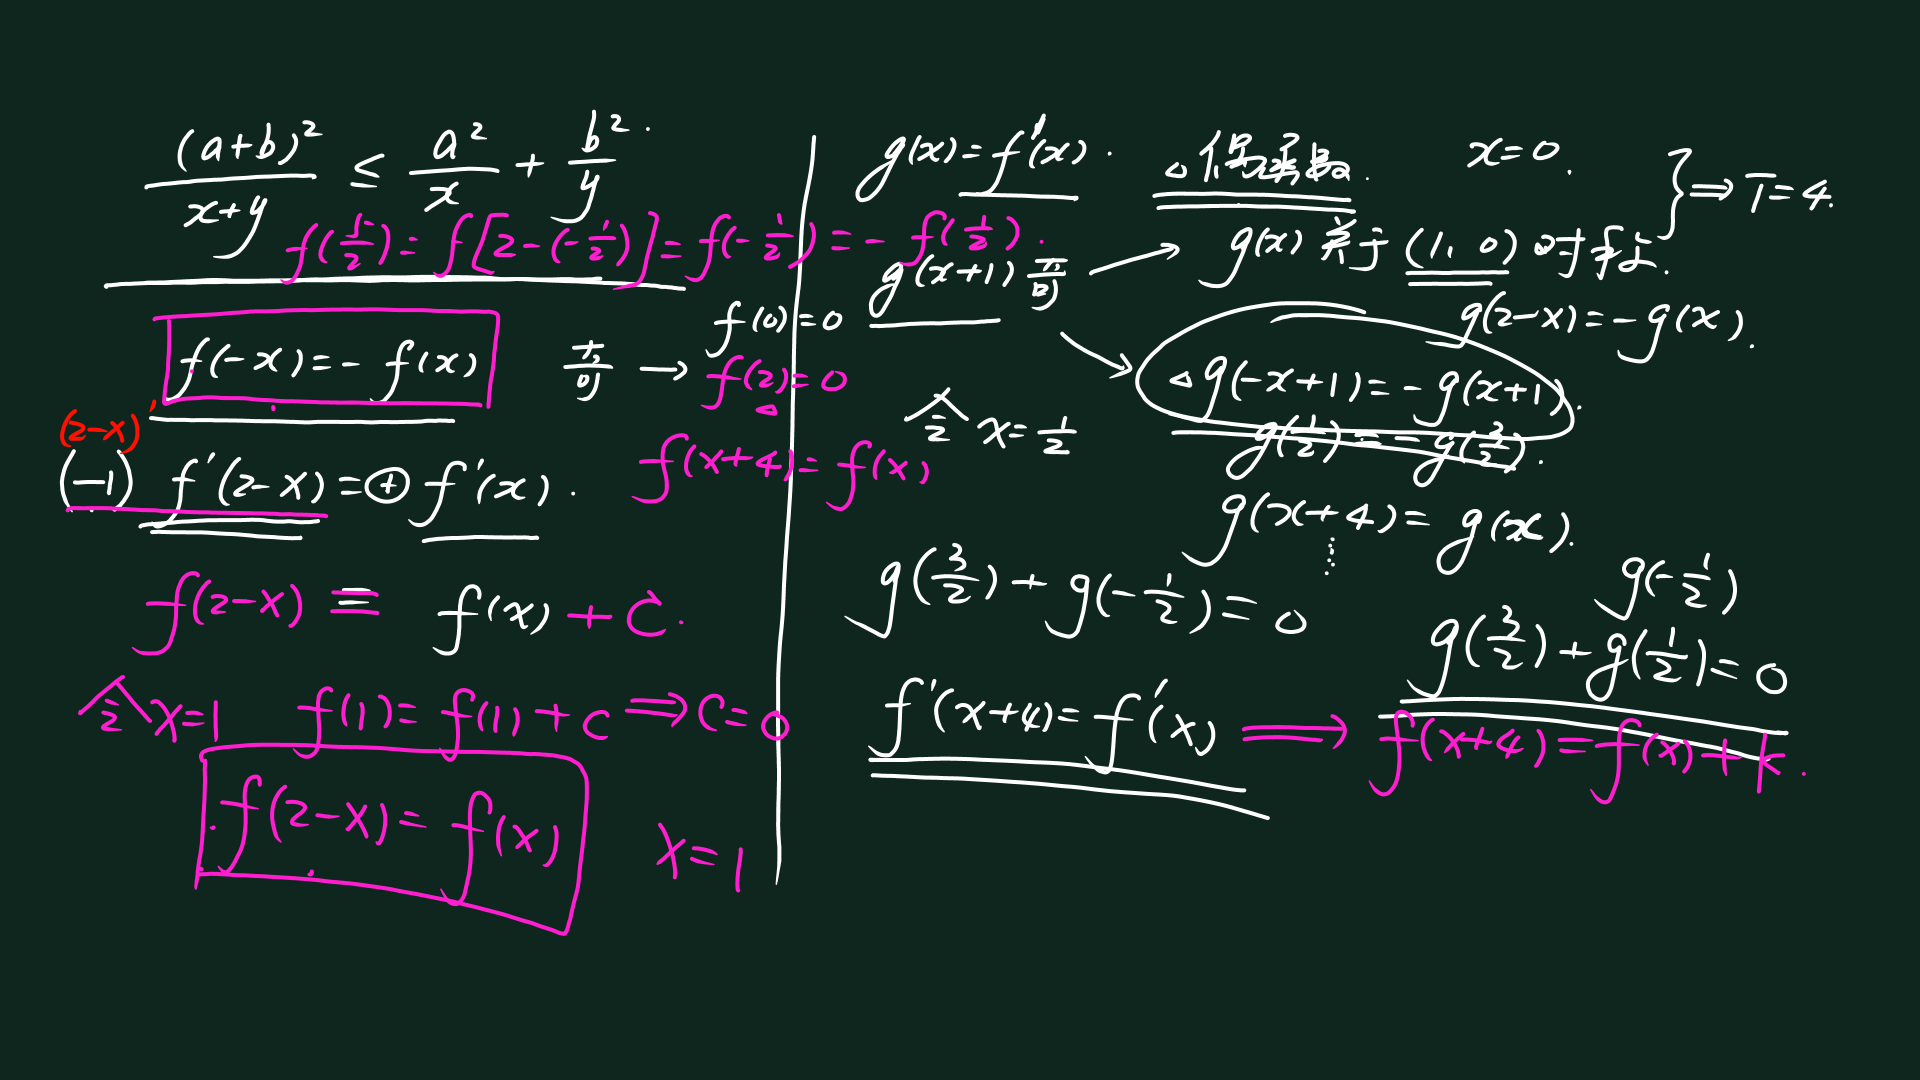 (a+b)²/(x+y) ≤ a²/x + b²/y.
f(1/2) = f[2-(-1/2)] = f(-1/2) = - f(1/2).
f(-x) = - f(x) 奇 → f(0)=0
f(2)=0
f(x+4) = f(x)
(2-x)'
(-1) f'(2-x) = + f'(x).
f(2-x) ≡ f(x) + C.
令 x=1 f(1) = f(1) + C ⇒ C=0
f(2-x) = f(x) x=1
g(x) = f'(x). x=0.
g(x+1) 奇 → g(x) 关于 (1, 0) 对称. } ⇒ T=4.
g(2-x) = -g(x).
g(-x+1) = -g(x+1).
令 x=1/2 g(1/2) = -g(3/2).
g(x+4) = g(x).
g(3/2) + g(-1/2) = 0
g(-1/2)
g(3/2) + g(1/2) = 0
f'(x+4) = f'(x) ⇒ f(x+4) = f(x) + k.